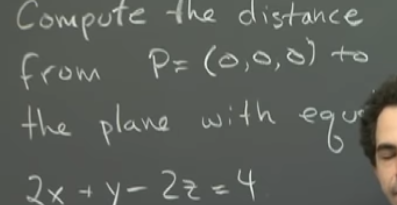 Compute the distance
from P= (0,0,0) to
the plane with
2x + y - 2z = 4